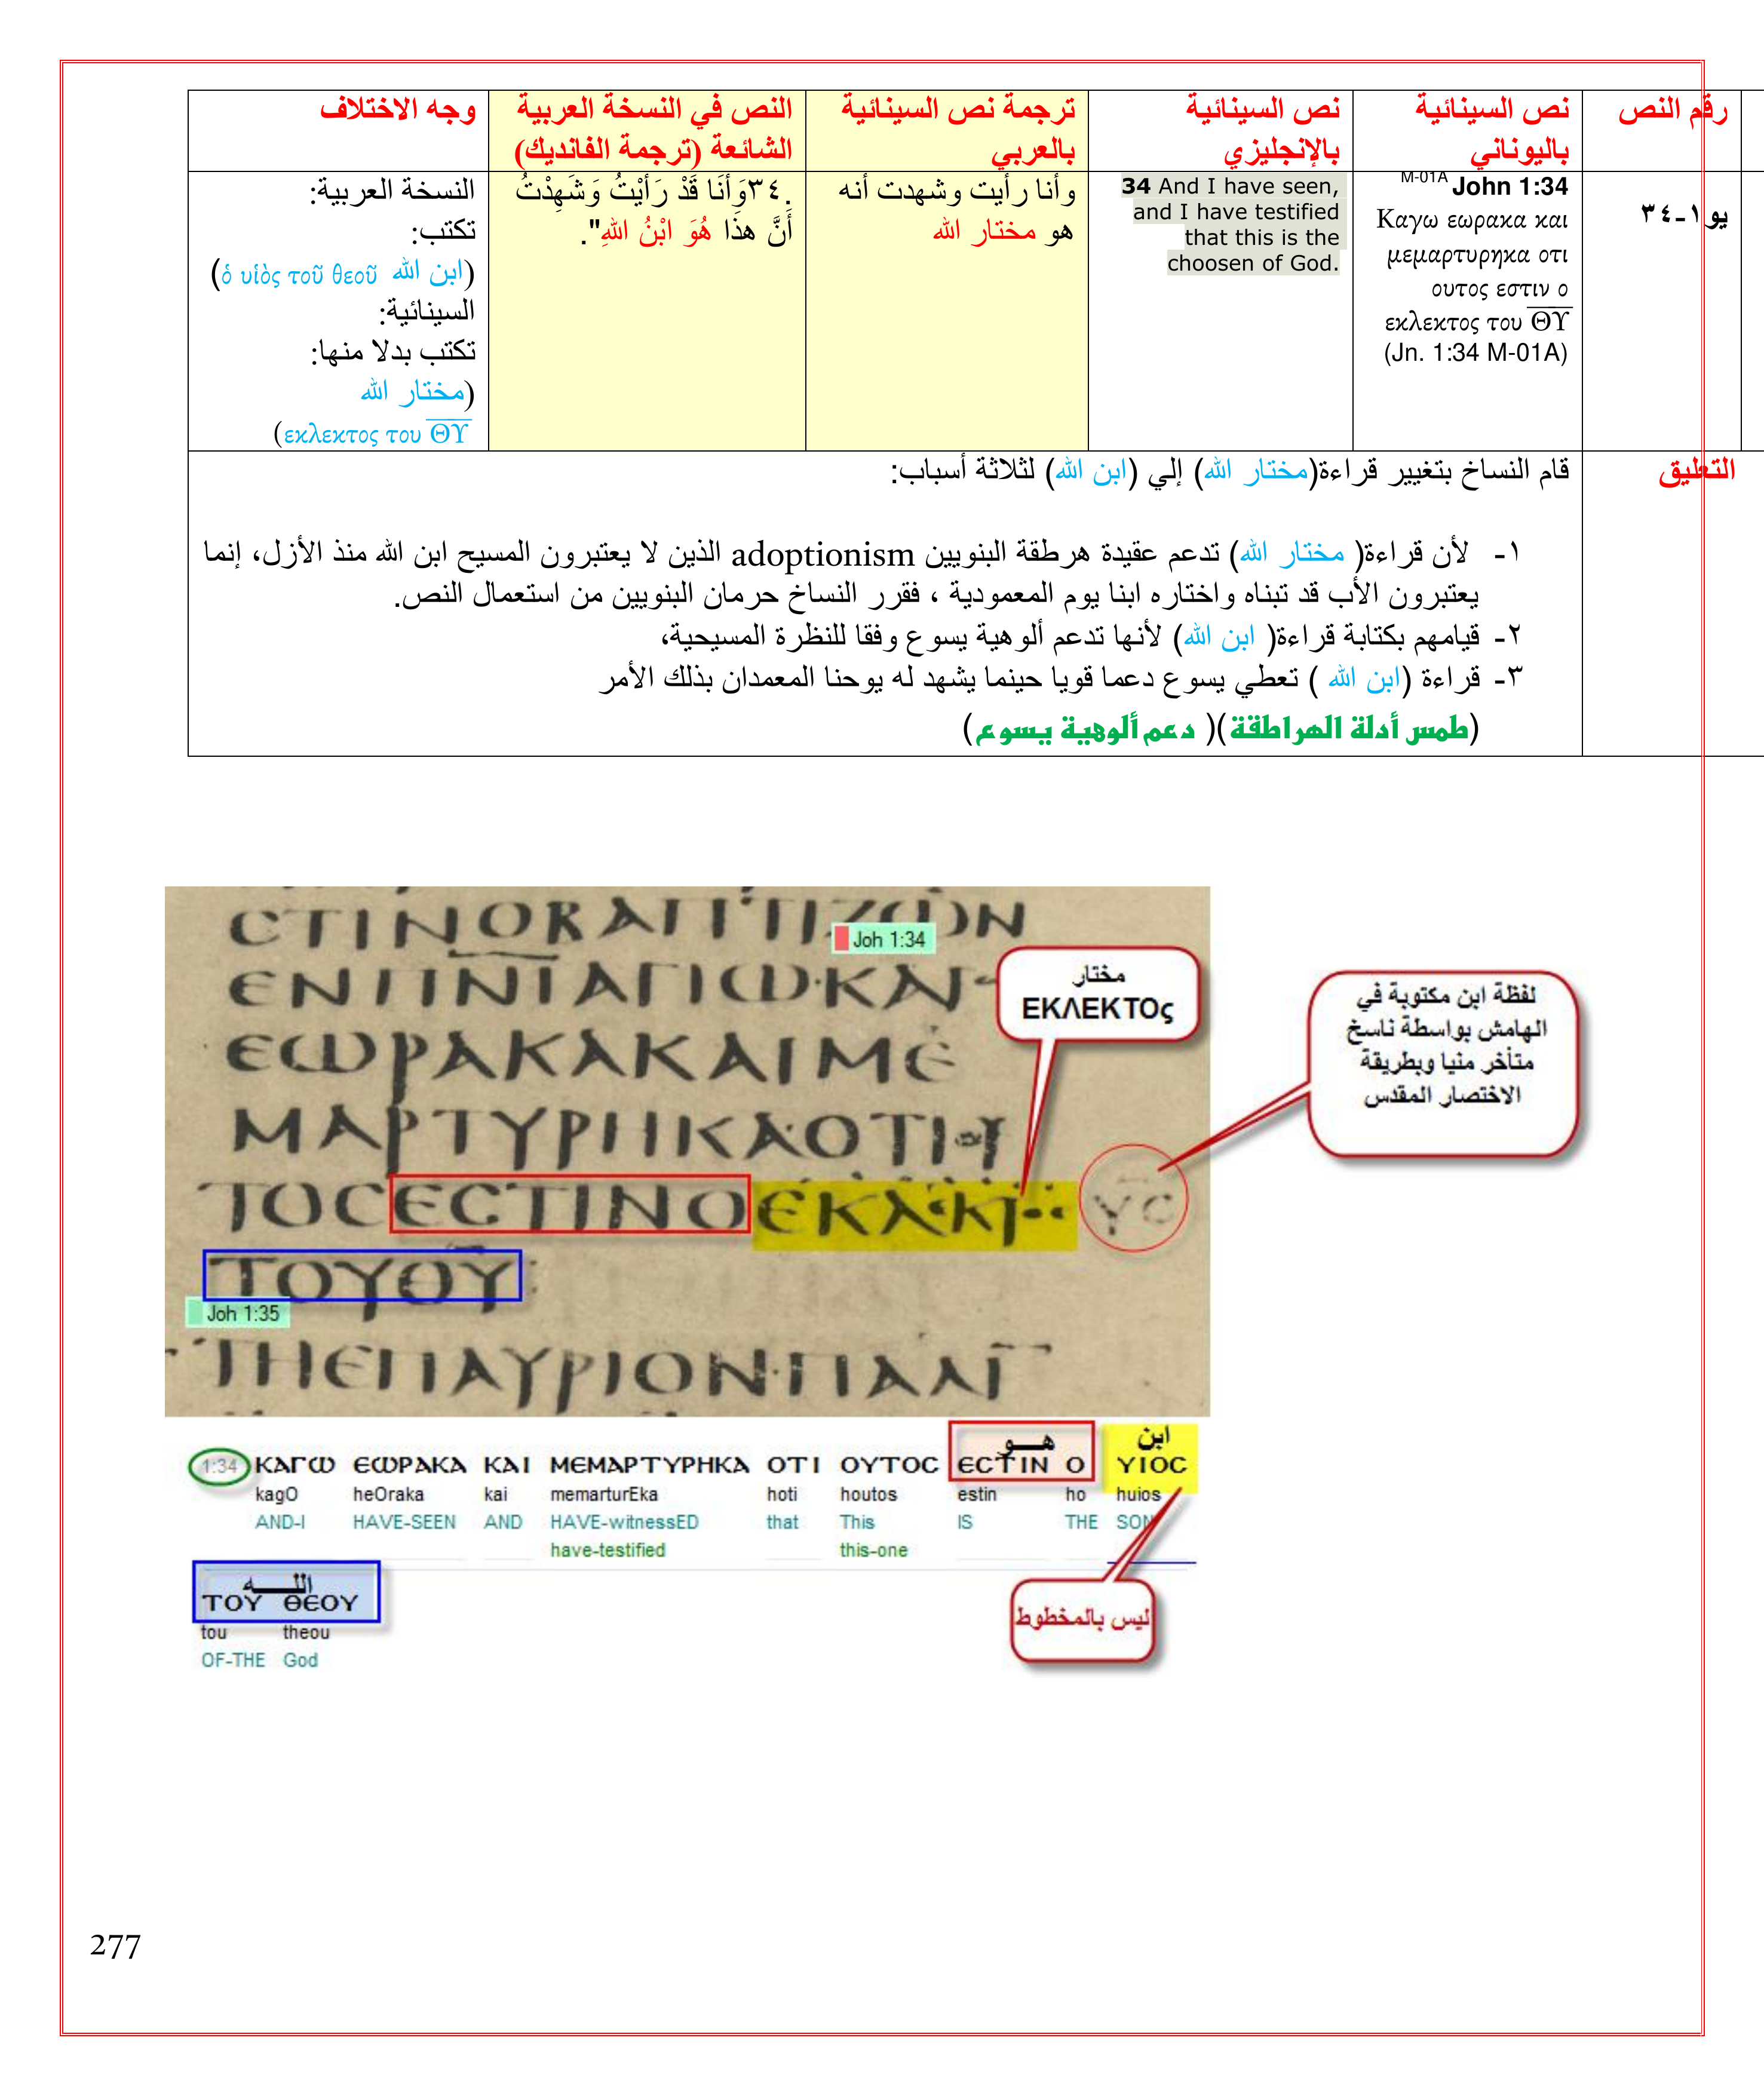 رقم النص
نص السينائية
باليوناني
نص السينائية
بالإنجليزي
ترجمة نص السينائية
بالعربي
النص في النسخة العربية
الشائعة (ترجمة الفانديك)
وجه الاختلاف
يو ١-٣٤
M-01A John 1:34
Καγω εωρακα και
μεμαρτυρηκα οτι
ουτος εστιν ο
εκλεκτος του ΘΥ
(Jn. 1:34 M-01A)
34 And I have seen,
and I have testified
that this is the
choosen of God.
وأنا رأيت وشهدت أنه
هو مختار الله
.٣٤وَأَنَا قَدْ رَأَيْتُ وَشَهِدْتُ
أَنَّ هذَا هُوَ ابْنُ اللهِ".
النسخة العربية:
تكتب:
(ابن الله ὁ υἱὸς τοῦ θεοῦ)
السينائية:
تكتب بدلا منها:
(مختار الله
εκλεκτος του ΘΥ)
التعليق
قام النساخ بتغيير قراءة(مختار الله) إلي (ابن الله) لثلاثة أسباب:
١- لأن قراءة( مختار الله) تدعم عقيدة هرطقة البنويين adoptionism الذين لا يعتبرون المسيح ابن الله منذ الأزل، إنما
يعتبرون الأب قد تبناه واختاره ابنا يوم المعمودية ، فقرر النساخ حرمان البنويين من استعمال النص.
٢- قيامهم بكتابة قراءة( ابن الله) لأنها تدعم ألوهية يسوع وفقا للنظرة المسيحية،
٣- قراءة (ابن الله ) تعطي يسوع دعما قويا حينما يشهد له يوحنا المعمدان بذلك الأمر
(طمس أدلة الهراطقة)( دعم ألوهية يسوع)
CΤΙΝΟΒΑΠΤΙΖΩΝ
Joh 1:34
ЄΝΠΝΙΑΓΙΩ·ΚΑΙ
ЄΩΡΑΚΑΚΑΙΜЄ
ΜΑΡΤΥΡΗΚΑΟΤΙ
ΤΟCЄCΤΙΝΟЄΚΛЄΚΤ
ΥC
ΤΟΥΘΥ
Joh 1:35
ΤΗЄΠΑΥΡΙΟΝ·ΠΑΛΙ
مختار
ΕΚΛΕΚΤΟς
لفظة ابن مكتوبة في
الهامش بواسطة ناسخ
متأخر منيا وبطريقة
الاختصار المقدس
هــو
ابن
1:34 ΚΑΓΩ ЄΩΡΑΚΑ ΚΑΙ ΜЄΜΑΡΤΥΡΗΚΑ ΟΤΙ ΟΥΤΟC ЄCΤΙΝ Ο ΥΙΟC
kagO heOraka kai memarturEka hoti houtos estin ho huios
AND-I HAVE-SEEN AND HAVE-witnessED that This IS THE SON
have-testified this-one
اللــــه
ΤΟΥ ΘЄΟΥ
tou theou
OF-THE God
ليس بالمخطوط
277